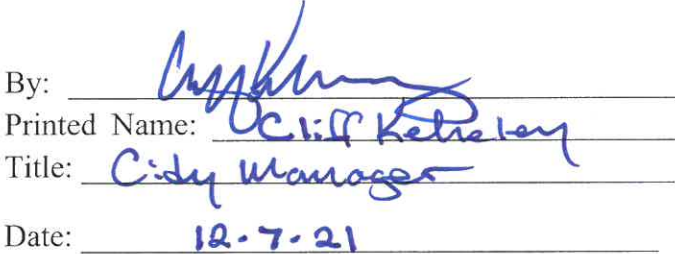 By:
Printed Name: Cliff Kelreley
Title: City Manager
Date: 12-7-21